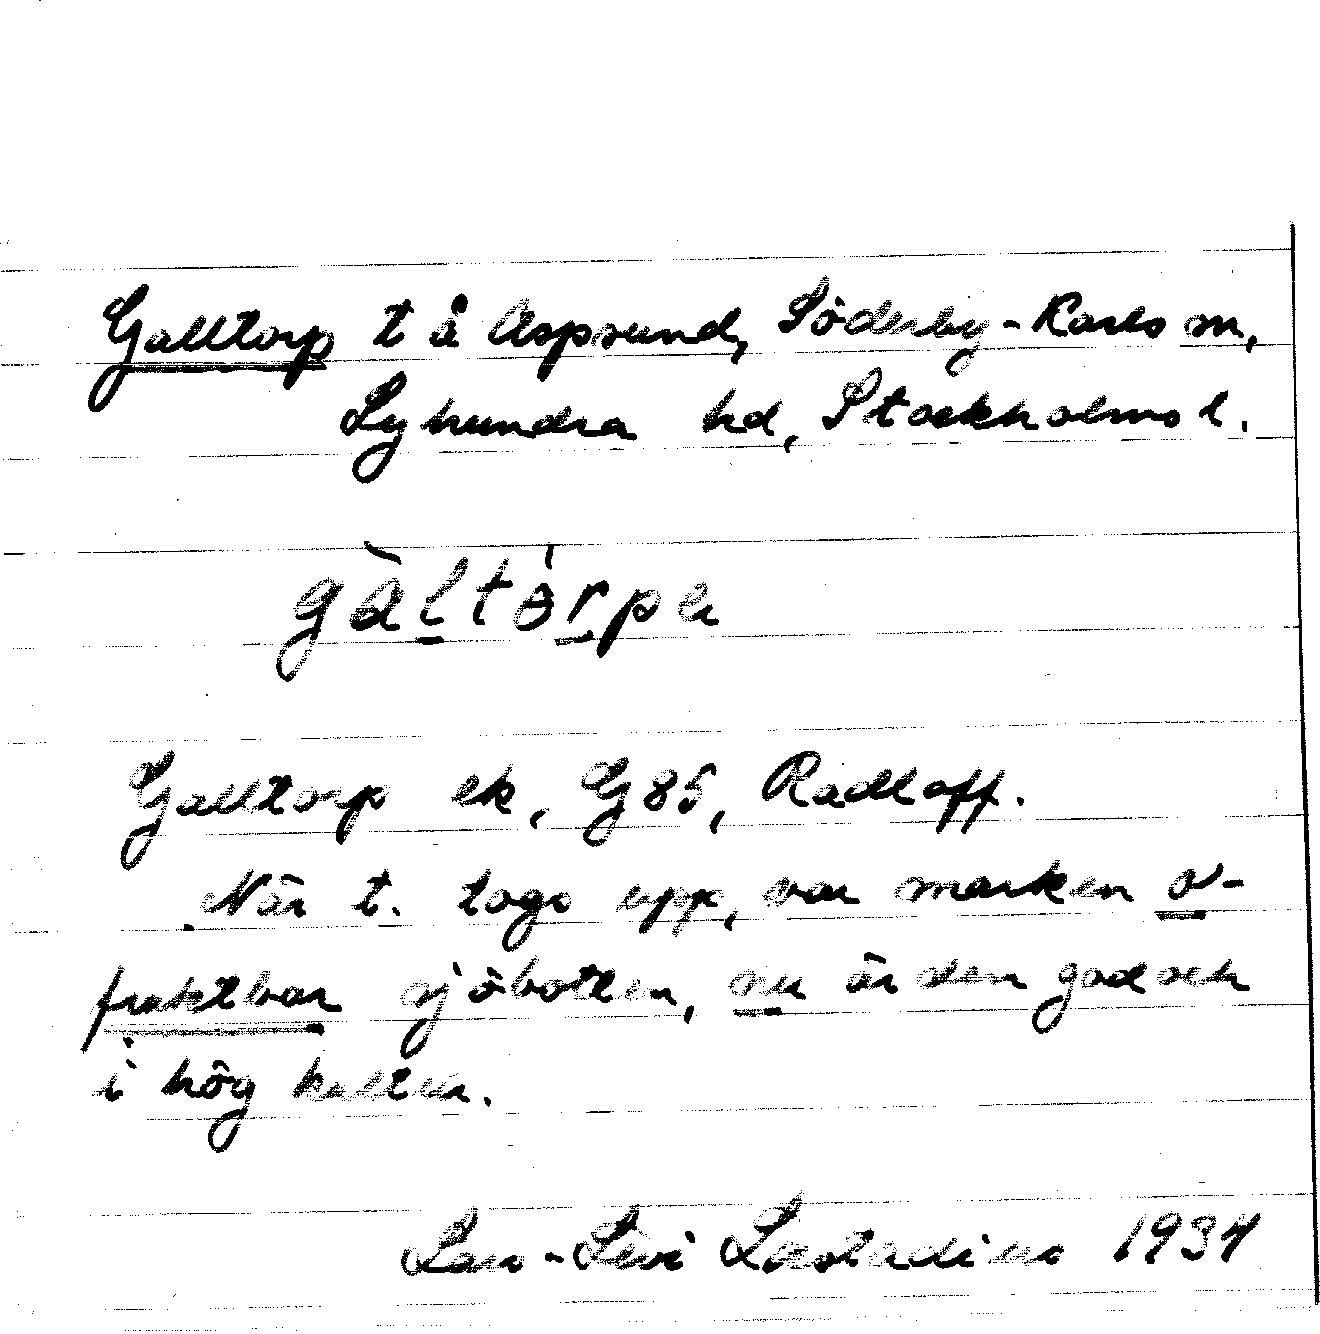 Galltorp t å Aspsund, Söderby-Karls sn,
Lyhundra hd, Stockholms l.
gàltórpe
Galltorp ek, G85, Radloff.
När t. togs upp, var marken o-
fruktbar sjöbotten, nu är den god och
i hög kultur.
Lars-Levi Læstadius 1934